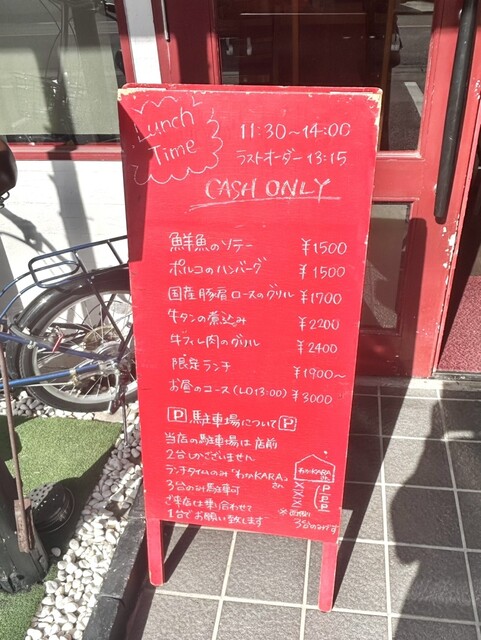 Lunch Time
11:30～14:00
ラストオーダー 13:15
CASH ONLY
鮮魚のソテー ¥1500
ポルコのハンバーグ ¥1500
国産豚肩ロースのグリル ¥1700
牛タンの煮込み ¥2200
牛フィレ肉のグリル ¥2400
限定ランチ ¥1900～
お昼のコース(LO13:00) ¥3000
P 駐車場について P
当店の駐車場は店前
2台しかございません
ランチタイムのみ「わかKARA」さん
3台のみ駐車可
ご来店は乗り合わせて
1台でお願い致します
わかKARAさん
X P
X P
X P
3台のみです